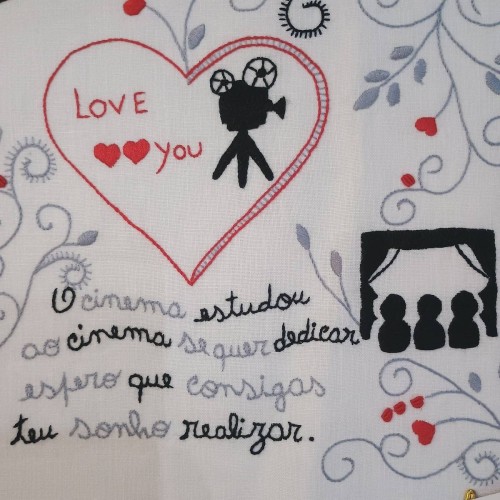 LOVE
YOU
O cinema estudou
ao cinema se quer dedicar
espero que consigas
teu sonho realizar.